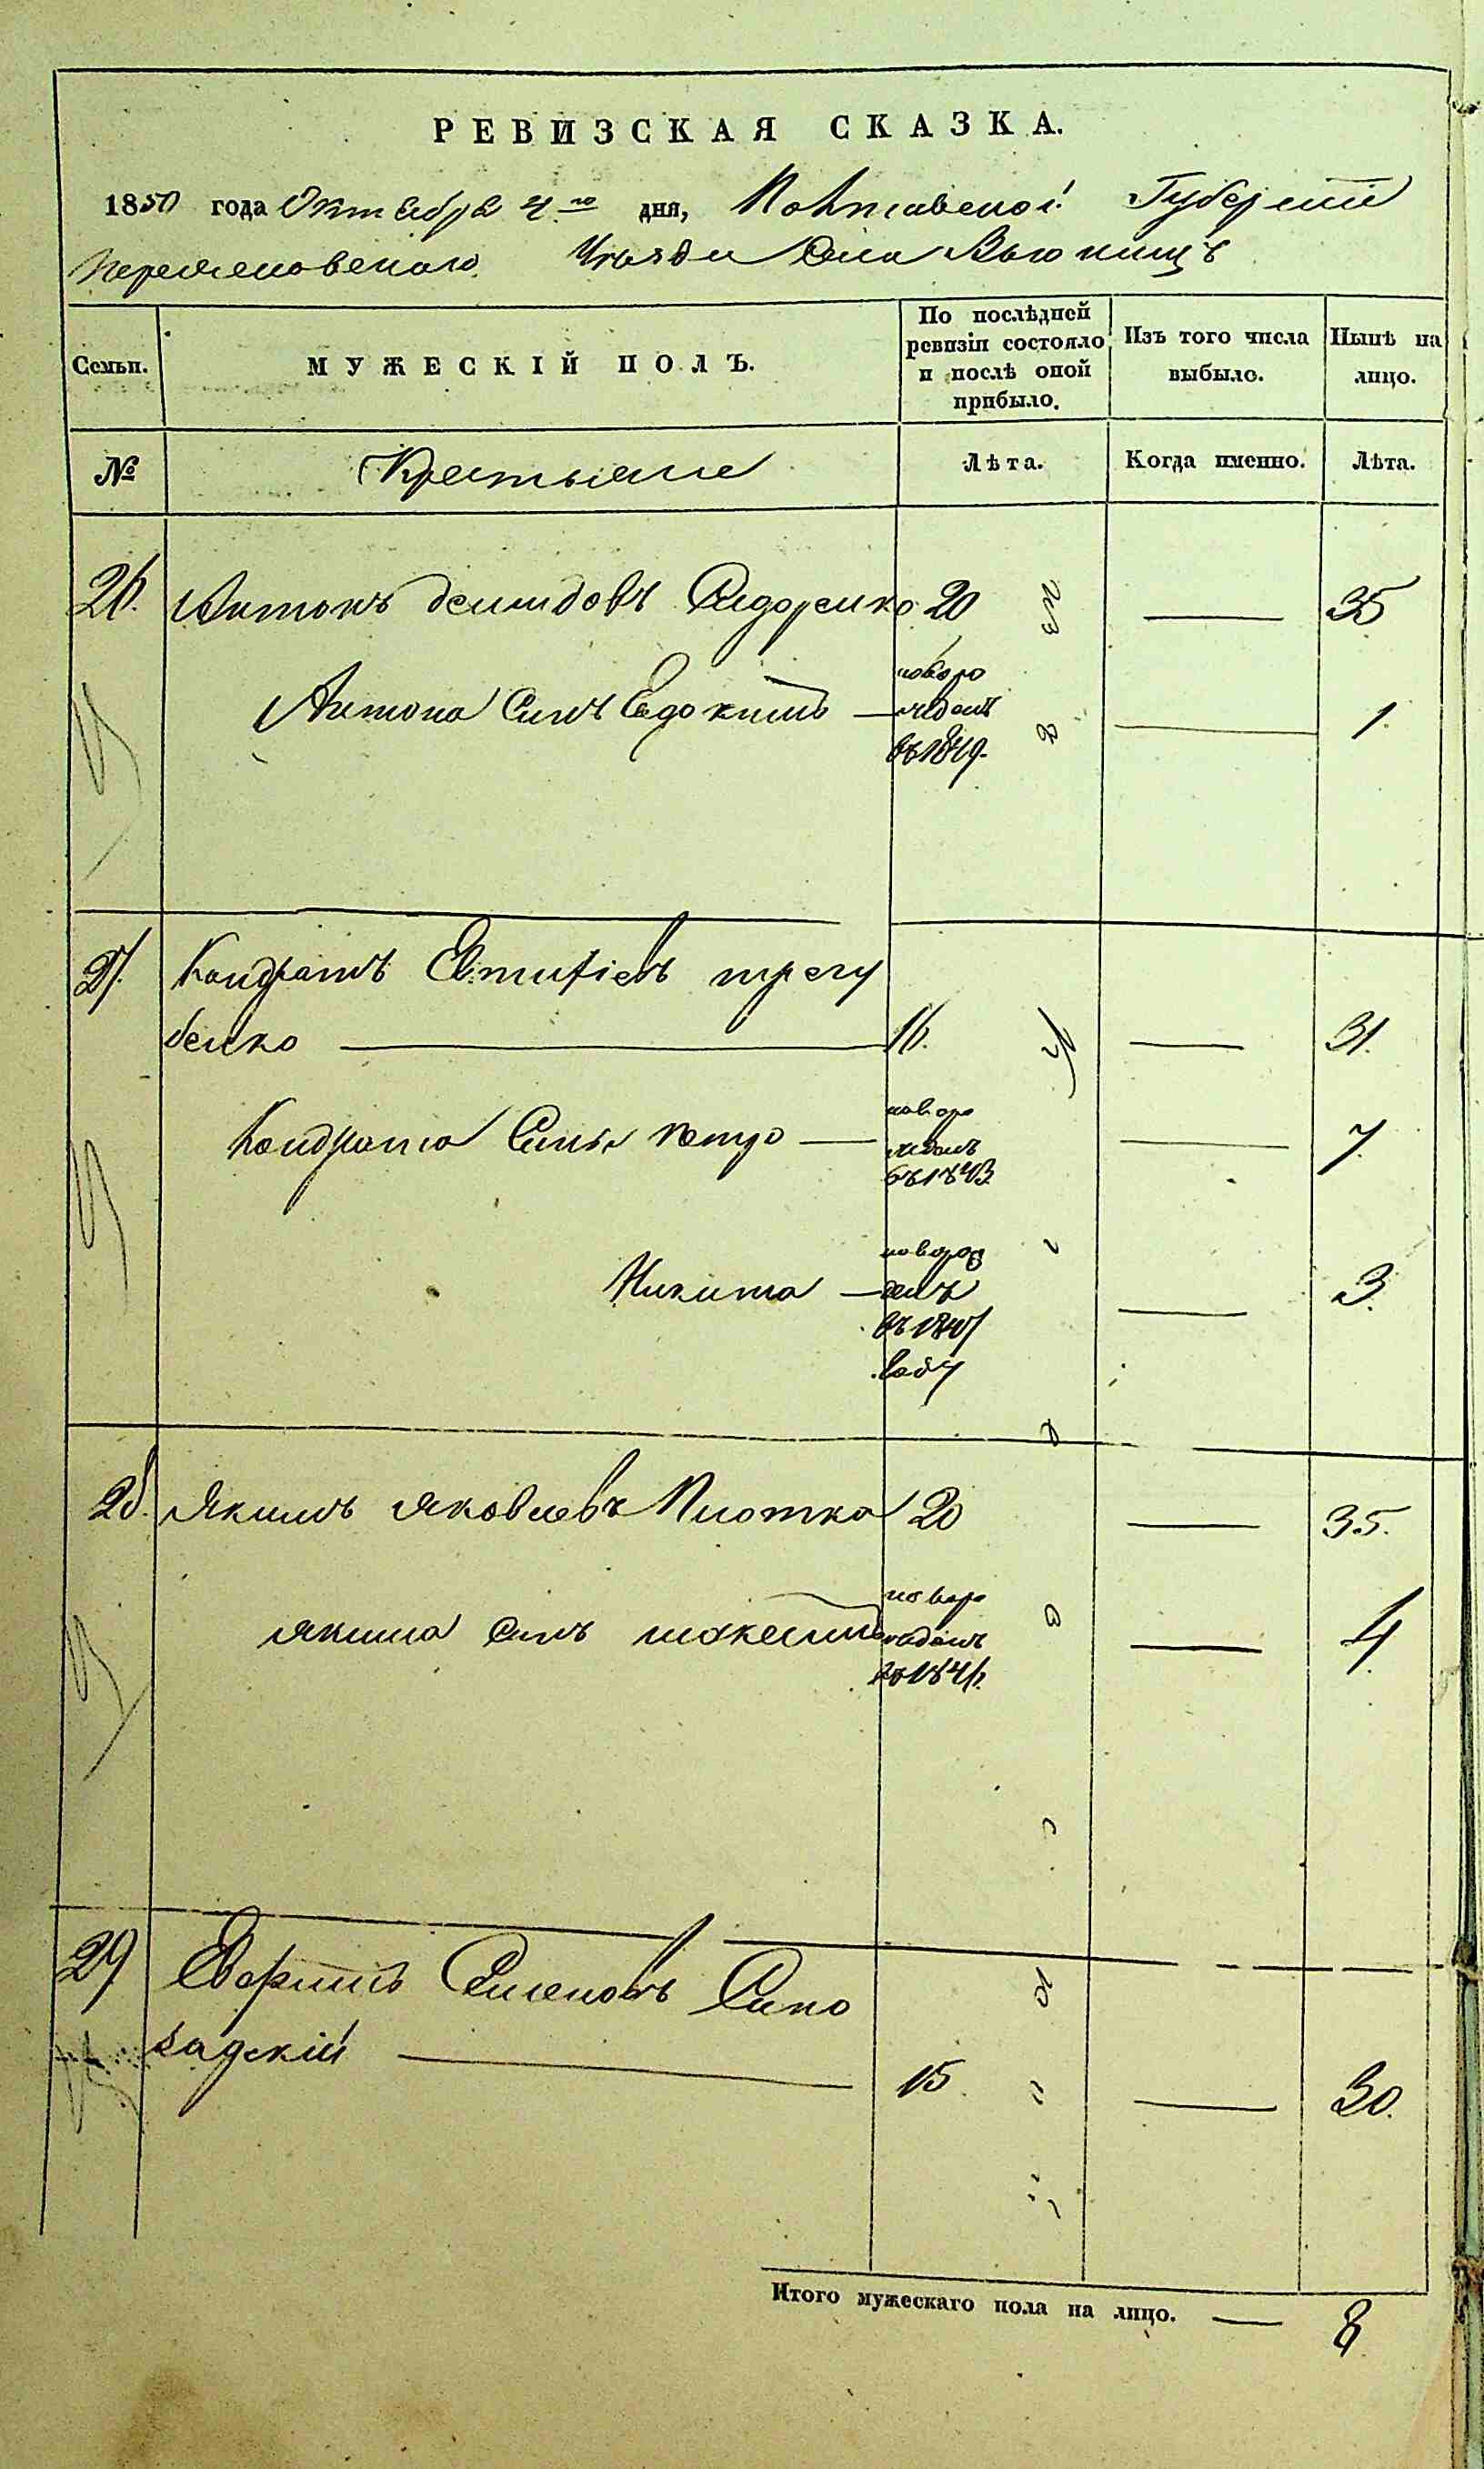 РЕВИЗСКАЯ СКАЗКА.
1850 года Октября 4го дня, Полтавской Губернiи
Переяславского Уезда Села Вьюнищъ
Семьи. МУЖЕСКІЙ ПОЛЪ. По послѣдней ревизіи состояло и послѣ оной прибыло. Изъ того числа выбыло. Нынѣ на лицо.
№ Крестьяне Лѣта. Когда именно. Лѣта.
26. Антонъ демидовъ Сидоренко 20 — 35
Антона Синъ Евдокимъ — новорожденъ въ 1849. — 1.
27. Кондратъ Евтифіевъ трегу
бенко — 16. — 31.
Кондрата Синъ петро — новорожденъ въ 1843 — 7.
Никита — новорожденъ въ 1847 году — 3.
28. Якимъ Яковлевъ Плотка 20 — 35.
якима синъ максимъ новорожденъ въ 1846. — 4
29 Семеновъ Сино
задскій — 15. — 30.
Итого мужескаго пола на лицо. — 8